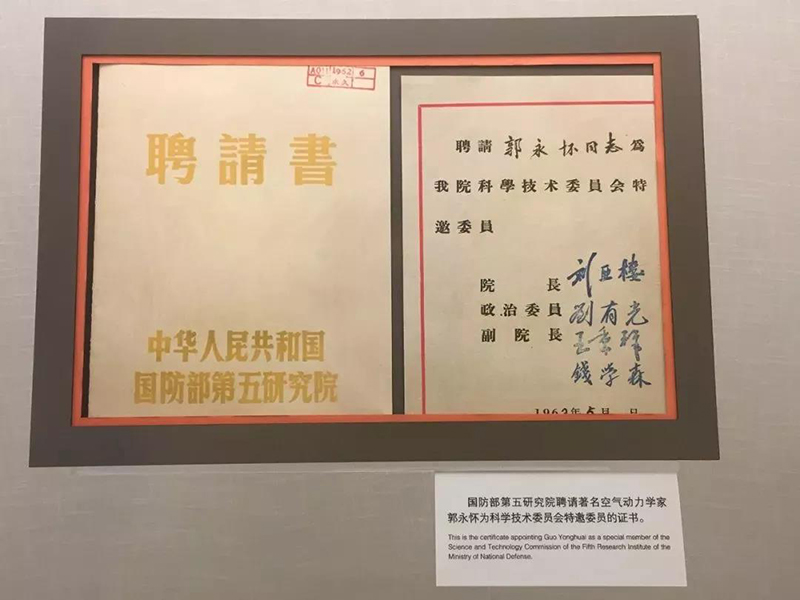 1962 6
C 永久
聘請書
中华人民共和国
国防部第五研究院
聘請 郭永怀同志 為
我院科學技术委員会特
邀委員
院長 刘亚楼
政治委員 劉有光
副院長 王秉璋
錢学森
1962年5月 日
国防部第五研究院聘请著名空气动力学家
郭永怀为科学技术委员会特邀委员的证书。
This is the certificate appointing Guo Yonghuai as a special member of the
Science and Technology Commission of the Fifth Research Institute of the
Ministry of National Defense.